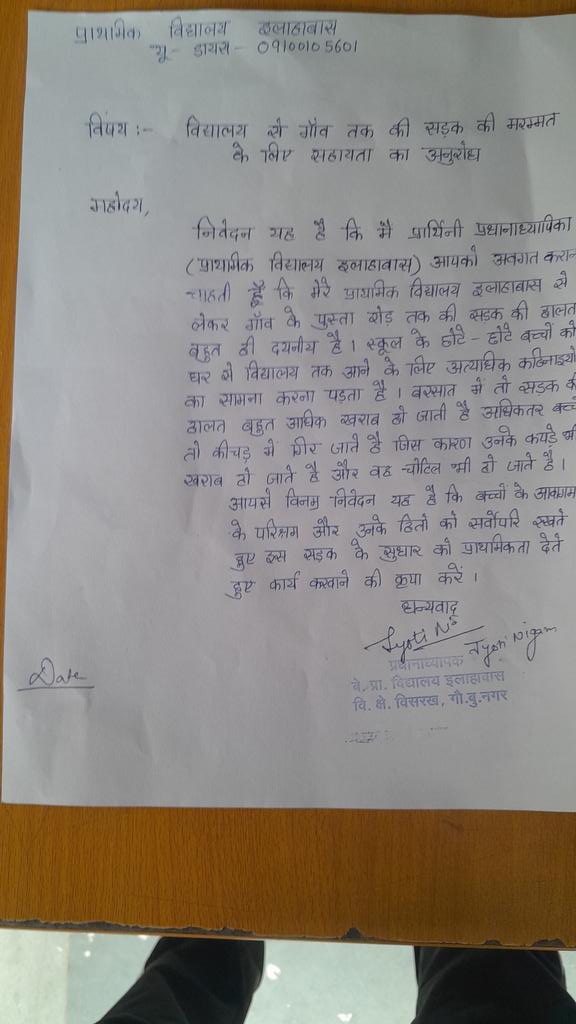 प्राथमिक विद्यालय इलाहाबास
यू - डायस - 09100105601
विषय :- विद्यालय से गाँव तक की सड़क की मरम्मत
के लिए सहायता का अनुरोध
महोदय,
निवेदन यह है कि मैं प्रार्थिनी प्रधानाध्यापिका
(प्राथमिक विद्यालय इलाहाबास) आपको अवगत कराना
चाहती हूँ कि मेरे प्राथमिक विद्यालय इलाहाबास से
लेकर गाँव के पुस्ता रोड़ तक की सड़क की हालत
बहुत ही दयनीय है । स्कूल के छोटे - छोटे बच्चों को
घर से विद्यालय तक आने के लिए अत्याधिक कठिनाइयो
का सामना करना पड़ता है । बरसात में तो सड़क की
हालत बहुत अधिक खराब हो जाती है अधिकतर बच्चे
तो कीचड़ में गिर जाते है जिस कारण उनके कपड़े भी
खराब हो जाते है और वह चोटिल भी हो जाते है ।
आपसे विनम्र निवेदन यह है कि बच्चों के
के परिश्रम और उनके हितो को सर्वोपरि रखते
हुए इस सड़क के सुधार को प्राथमिकता देते
हुए कार्य करवाने की कृपा करें ।
धन्यवाद
Jyoti Ni
Jyoti Nigam
प्रधानाध्यापक
बे. प्रा. विद्यालय इलाहाबास
वि. क्षे. बिसरख, गौ.बु.नगर
Date